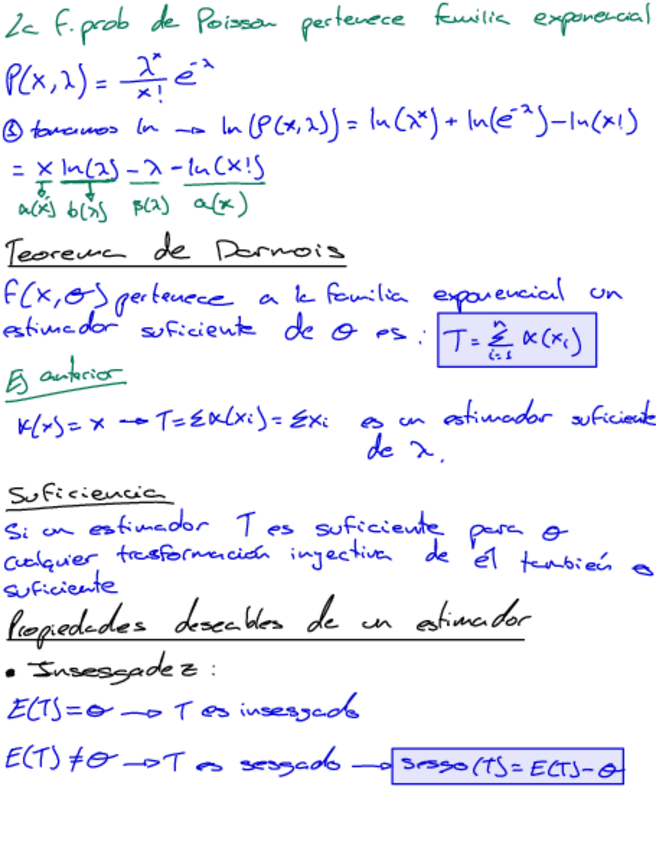 La f. prob de Poisson pertenece familia exponencial
P(x,λ) = λ^x / x! e^-λ
① tomamos ln → ln(P(x,λ)) = ln(λ^x) + ln(e^-λ) - ln(x!)
= x ln(λ) - λ - ln(x!)
a(x) b(λ) β(λ) a(x)
Teorema de Darmois
f(x,θ) pertenece a la familia exponencial un
estimador suficiente de θ es: T = Σ_{i=1}^{n} α(x_i)
Ej anterior
α(x) = x → T = Σα(x_i) = Σx_i es un estimador suficiente
de λ.
Suficiencia
Si un estimador T es suficiente para θ
cualquier trasformación inyectiva de él también es
suficiente
Propiedades deseables de un estimador
• Insesgadez:
E(T) = θ → T es insesgado
E(T) ≠ θ → T es sesgado → sesgo(T) = E(T) - θ